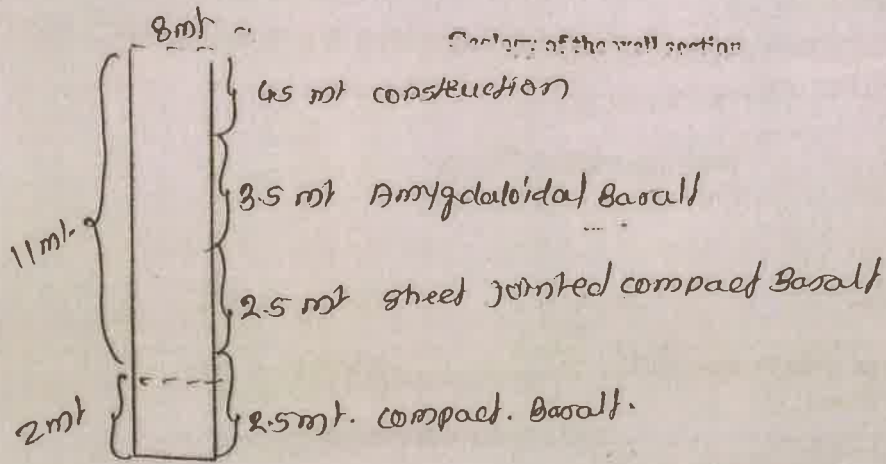 8mt
Geology of the well section
4.5 mt construction
3.5 mt Amygdaloidal Basalt
11mt.
2.5 mt sheet jointed compact Basalt
2mt
2.5mt. compact. Basalt.